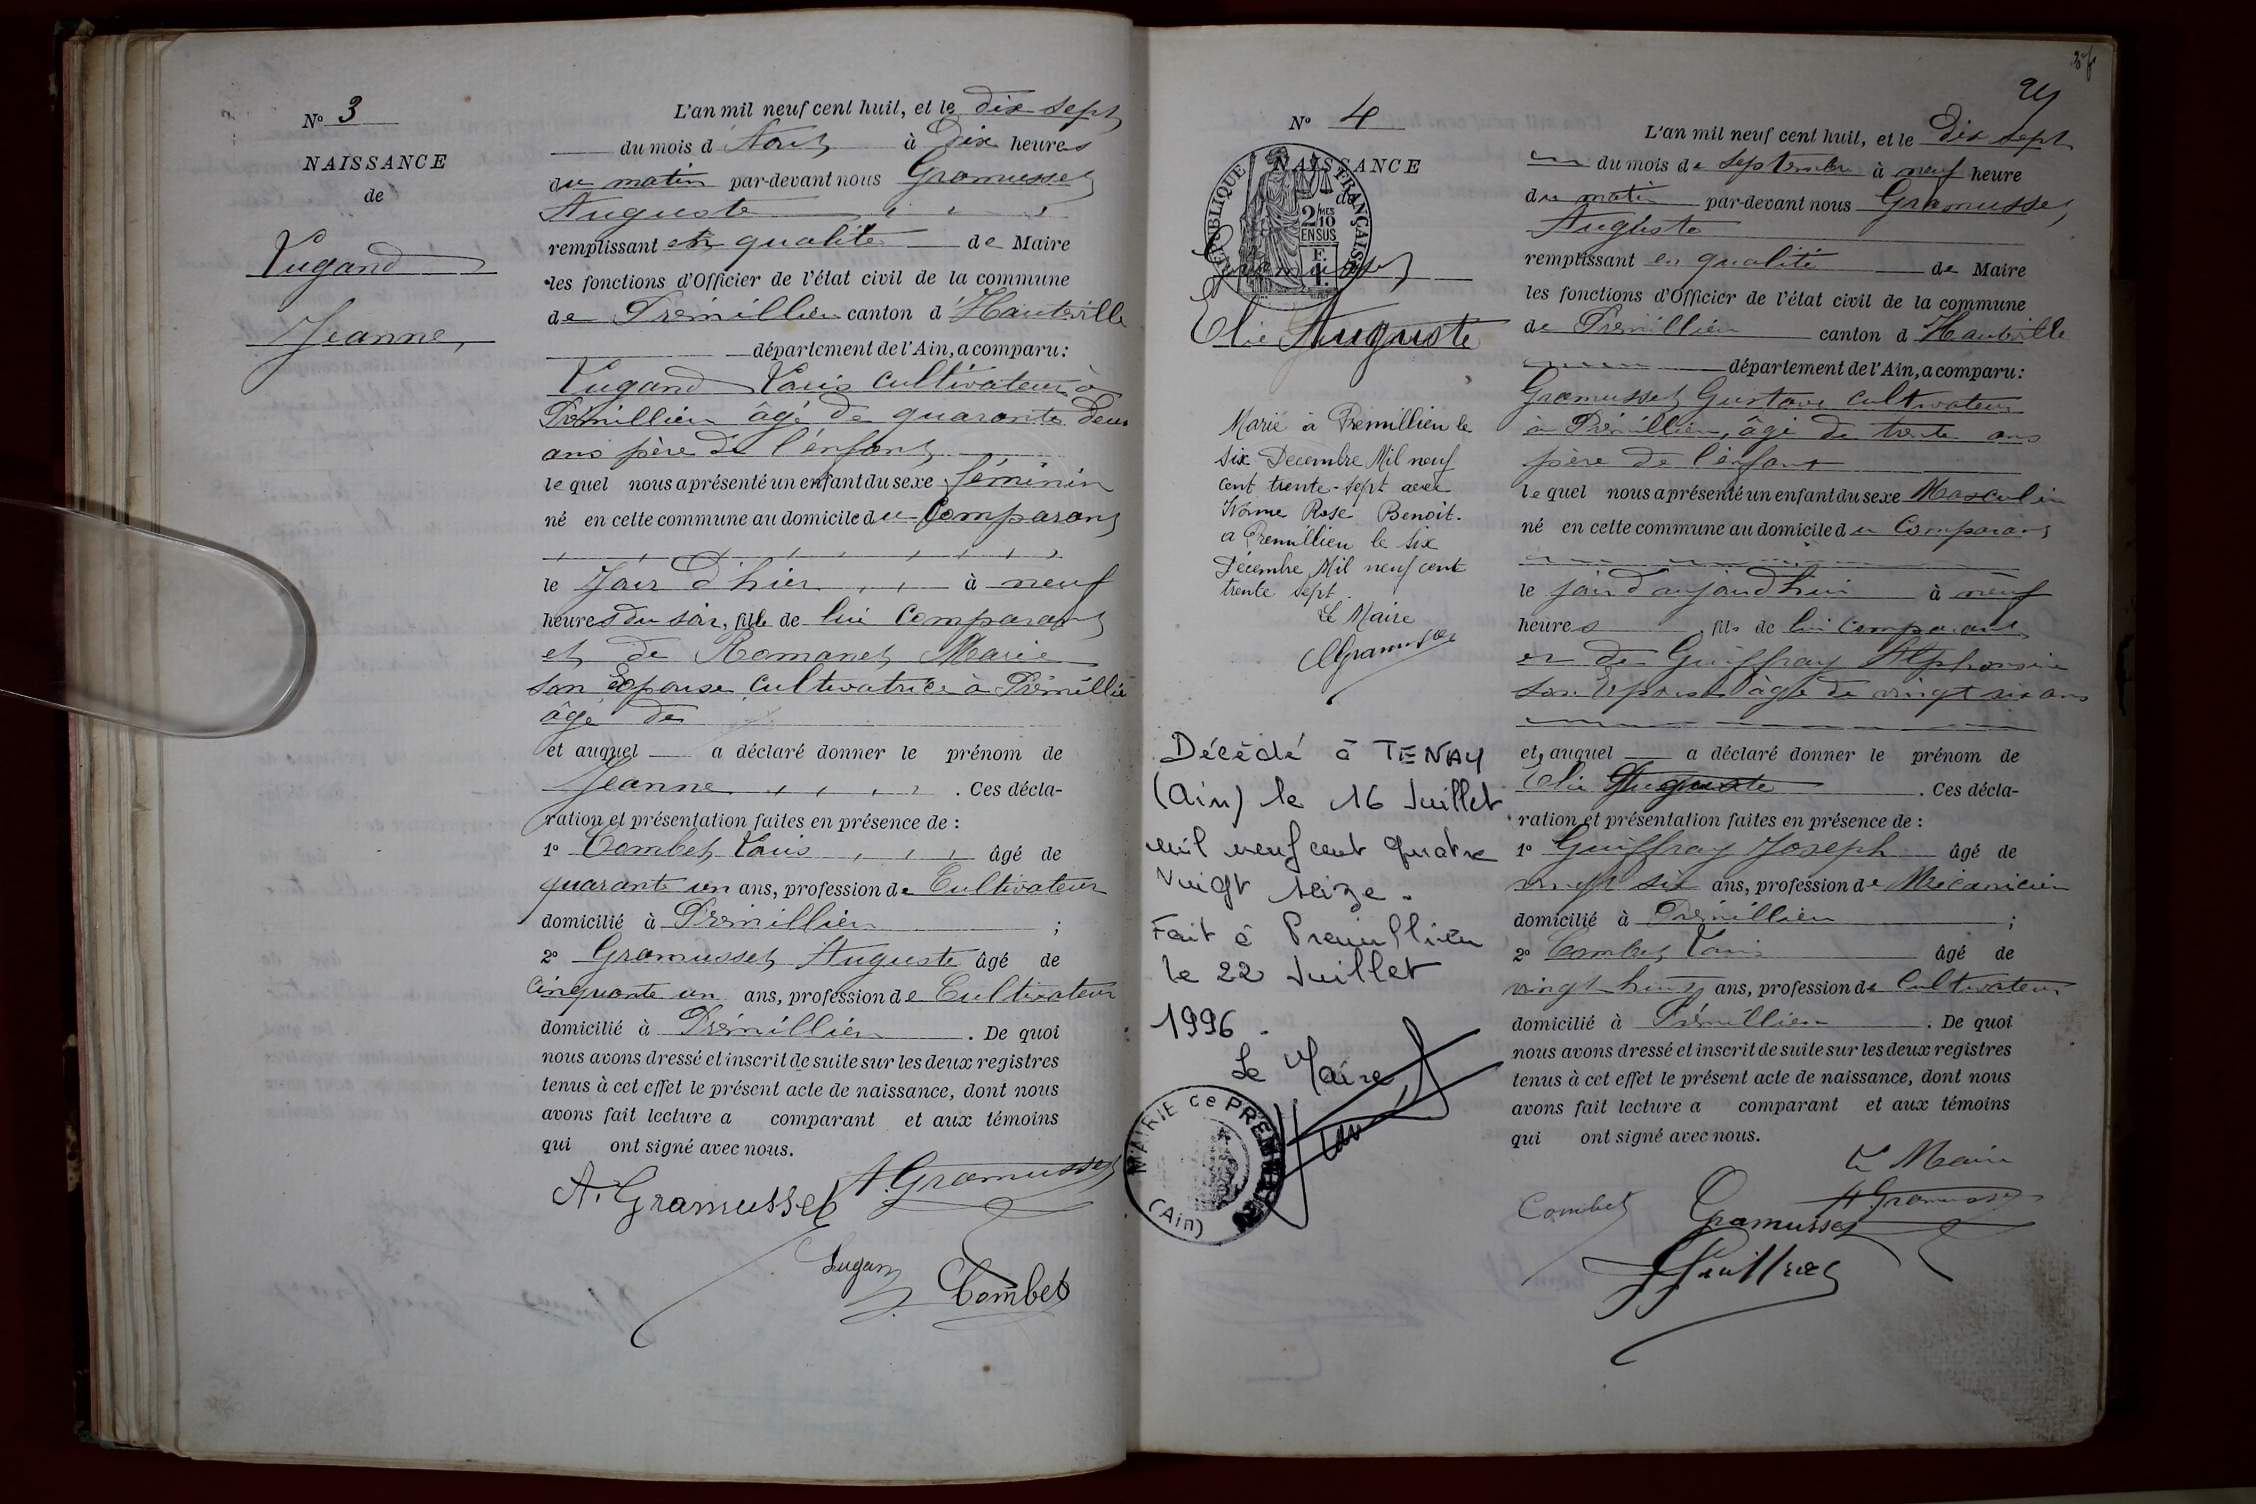 N° 3
NAISSANCE
de
Lugand
Jeanne,
L'an mil neuf cent huit, et le dix sept
du mois d'Aout à Dix heures
du matin par-devant nous Gramusset
Auguste
remplissant en qualité de Maire
les fonctions d'Officier de l'état civil de la commune
de Prémillieu canton d'Hauteville
département de l'Ain, a comparu:
Lugand Louis cultivateur à
Prémillieu âgé de quarante deux
ans père de l'enfant
lequel nous a présenté un enfant du sexe féminin
né en cette commune au domicile du Comparant
le Jour d'hier à neuf
heures du soir, fille de lui Comparant
et de Romanet Marie
son Epouse Cultivatrice à Prémillieu
âgé de
et auquel a déclaré donner le prénom de
Jeanne. Ces décla-
ration et présentation faites en présence de :
1° Combet Louis âgé de
quarante un ans, profession de Cultivateur
domicilié à Prémillieu ;
2° Gramusset Auguste âgé de
Cinquante un ans, profession de Cultivateur
domicilié à Prémillieu. De quoi
nous avons dressé et inscrit de suite sur les deux registres
tenus à cet effet le présent acte de naissance, dont nous
avons fait lecture a comparant et aux témoins
qui ont signé avec nous.
A. Gramusset A. Gramusset
Lugand
Combet
24
N° 4
NAISSANCE
de
RÉPUBLIQUE FRANÇAISE
2/10 MES
EN SUS
F.
1.
Gramusset
Elie Auguste
Marié à Premillieu le
six Decembre Mil neuf
cent trente-sept avec
Yvonne Rose Benoit.
a Premillieu le six
Décembre Mil neuf cent
trente sept.
Le Maire
Gramusset
Décédé à TENAY
(Ain) le 16 Juillet
mil neuf cent quatre
vingt seize.
Fait à Premillieu
le 22 Juillet
1996.
Le Maire,
MAIRIE de PREMILLIEU
(Ain)
L'an mil neuf cent huit, et le Dix sept
du mois de Septembre à neuf heure
du matin par-devant nous Gramusset
Auguste
remplissant en qualité de Maire
les fonctions d'Officier de l'état civil de la commune
de Prémillieu canton d Hauteville
département de l'Ain, a comparu:
Gramusset Gustave cultivateur
à Prémillieu, âgé de trente ans
père de l'enfant
lequel nous a présenté un enfant du sexe Masculin
né en cette commune au domicile du Comparant
le jour d'aujourd'hui à neuf
heures, fils de lui comparant
et de Guiffray Alphonsine
son Epouse âgé de vingt six ans
et auquel a déclaré donner le prénom de
Elie Auguste. Ces décla-
ration et présentation faites en présence de :
1° Guiffray Joseph âgé de
vingt six ans, profession de Mécanicien
domicilié à Prémillieu ;
2° Combet Louis âgé de
vingt huit ans, profession de Cultivateur
domicilié à Prémillieu. De quoi
nous avons dressé et inscrit de suite sur les deux registres
tenus à cet effet le présent acte de naissance, dont nous
avons fait lecture a comparant et aux témoins
qui ont signé avec nous.
Le Maire
Combet Gramusset A. Gramusset
J Guiffray